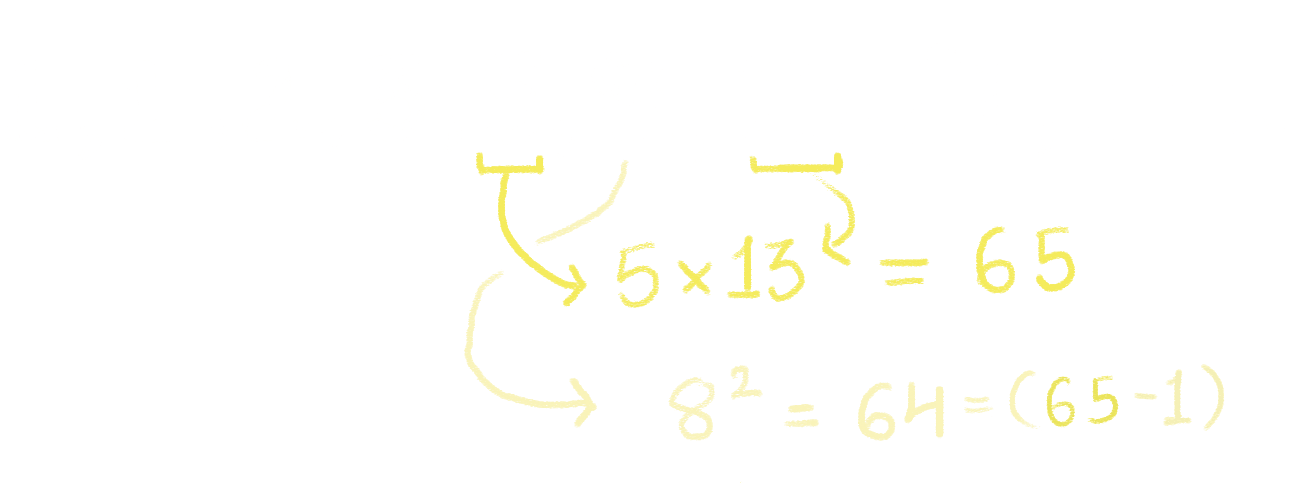 5 × 13 = 65
8² = 64 = (65 - 1)